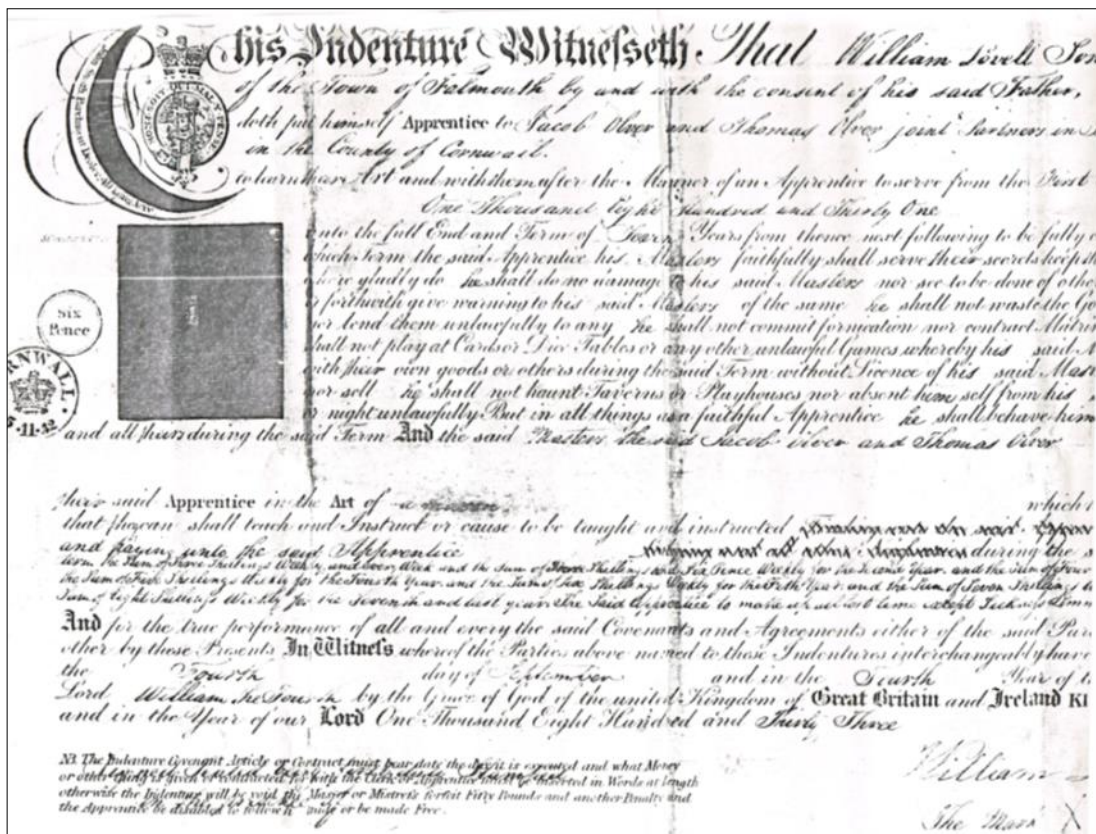 his Indenture Witnesseth That William Lovell Son
of the Town of Falmouth by and with the consent of his said Father,
doth put himself Apprentice to Jacob Olver and Thomas Olver joint Partners in
in the County of Cornwall.
to learn their Art and with them after the Manner of an Apprentice to serve from the First
One Thousand Eight Hundred and Thirty One
unto the full End and Term of Years from thence next following to be fully
which Term the said Apprentice his Masters faithfully shall serve their secrets keep
where gladly do he shall do no damage to his said Masters nor see to be done of
forthwith give warning to his said Masters of the same he shall not waste the
nor lend them unlawfully to any he shall not commit fornication nor contract
shall not play at Cards or Dice Tables or any other unlawful Games whereby his said
with their own goods or others during the said Term without Licence of his said
nor sell he shall not haunt Taverns or Playhouses nor absent him self from his
or night unlawfully But in all things as a faithful Apprentice he shall behave him
and all theirs during the said Term And the said Masters the said Jacob Olver and Thomas Olver
their said Apprentice in the Art of a which
that they can shall teach and Instruct or cause to be taught and instructed
and paying unto the said Apprentice during the
term the Sum of Three Shillings Weekly and every Week and the Sum of Three Shillings and Six Pence Weekly for the Second Year and the Sum of Four
the Sum of Five Shillings Weekly for the Fourth Year and the Sum of Six Shillings Weekly for the Fifth Year and the Sum of Seven Shillings
Sum of Eight Shillings Weekly for the Seventh and last year. The Said Apprentice to make up all lost time except
And for the true performance of all and every the said Covenants and Agreements either of the said
other by these Presents In Witness whereof the Parties above named to these Indentures interchangeably have
the Fourth day of September and in the Fourth Year of
Lord William the Fourth by the Grace of God of the united Kingdom of Great Britain and Ireland
and in the Year of our Lord One Thousand Eight Hundred and Thirty Three
Six
Pence
RNWALL
11
NB. The Indenture Covenant Article or Contract must bear date the day it is executed and what Money
or other thing is given or contracted for with the Clerk or Apprentice must be inserted in Words at length
otherwise the Indenture will be void the Master or Mistress forfeit Fifty Pounds and another Penalty and
the Apprentice be disabled to follow or be made Free.
William
The Mark X